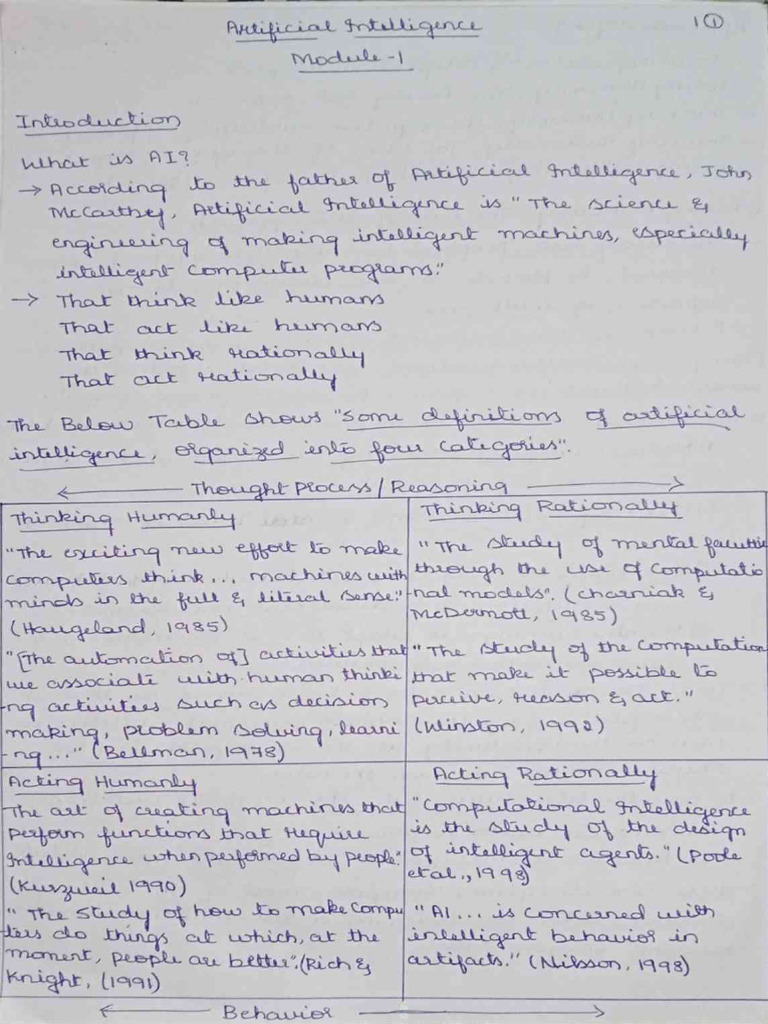 Artificial Intelligence
1 ①
Module-1
Introduction
What is AI?
→ According to the father of Artificial Intelligence, John
McCarthy, Artificial Intelligence is "The science &
engineering of making intelligent machines, especially
intelligent computer programs."
→ That think like humans
That act like humans
That think rationally
That act rationally
The Below Table shows "some definitions of artificial
intelligence, organized into four categories".
← Thought Process/Reasoning →
Thinking Humanly
"The exciting new effort to make
computers think... machines with
minds in the full & literal sense."
(Haugeland, 1985)
"[The automation of] activities that
we associate with human thinki
-ng activities such as decision
making, problem solving, learni
-ng..." (Bellman, 1978)
Thinking Rationally
"The study of mental faculties
through the use of computatio
-nal models". (Charniak &
McDermott, 1985)
"The study of the computation
that make it possible to
perceive, reason & act."
(Winston, 1992)
Acting Humanly
The art of creating machines that
perform functions that require
Intelligence when performed by people."
(Kurzweil 1990)
"The study of how to make compu
ters do things at which, at the
moment, people are better".(Rich &
Knight, (1991)
Acting Rationally
"Computational Intelligence
is the study of the design
of intelligent agents." (Poole
et al., 1998)
"AI... is concerned with
intelligent behavior in
artifacts." (Nilsson, 1998)
← Behavior →